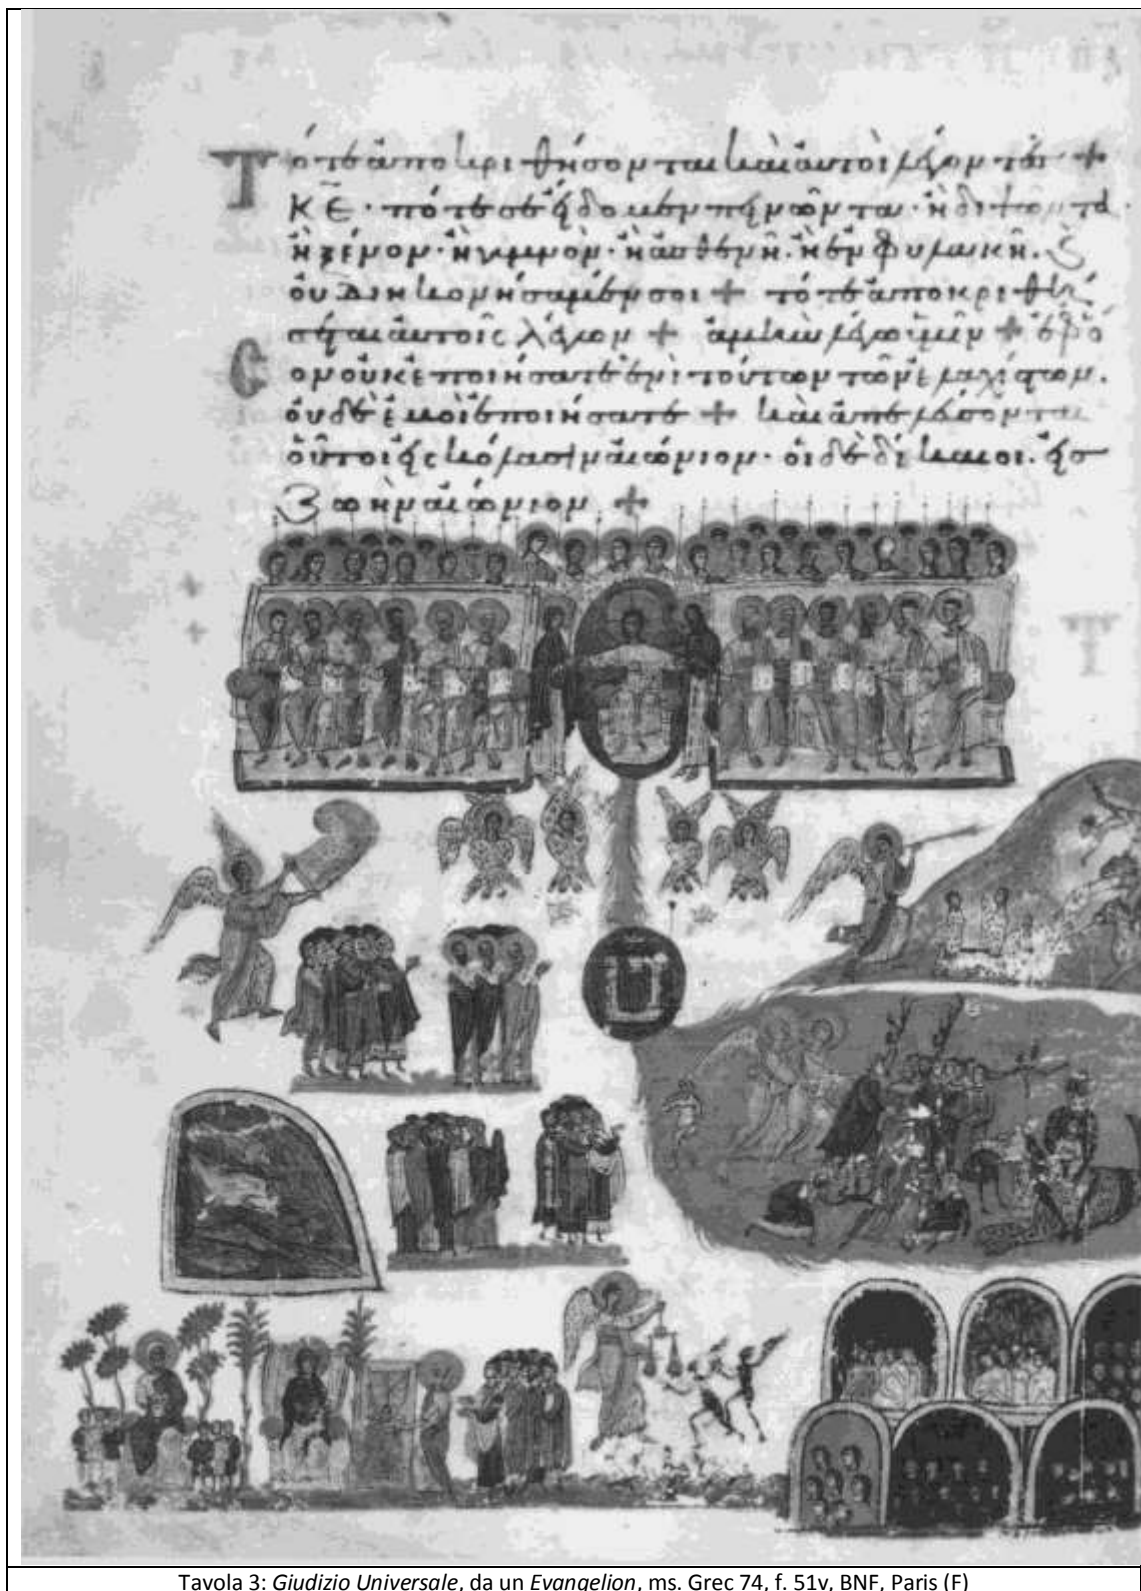 Τότε ἀποκριθήσονται καὶ αὐτοὶ λέγοντες +
ΚΕ· πότε σὲ εἴδομεν πεινῶντα· ἢ διψῶντα·
ἢ ξένον· ἢ γυμνὸν· ἢ ἀσθενῆ· ἢ ἐν φυλακῆ· ϗ
οὐ διηκονήσαμέν σοι + τότε ἀποκριθή
σεται αὐτοῖς λέγων + ἀμὴν λέγω ὑμῖν + ἐφ ὅ
σον οὐκ ἐποιήσατε ἑνὶ τούτων τῶν ἐλαχίστων·
οὐδὲ ἐμοὶ ἐποιήσατε + καὶ ἀπελεύσονται
οὗτοι εἰς κόλασιν αἰώνιον· οἱ δὲ δίκαιοι· εἰς
ζωὴν αἰώνιον +
Tavola 3: Giudizio Universale, da un Evangelion, ms. Grec 74, f. 51v, BNF, Paris (F)